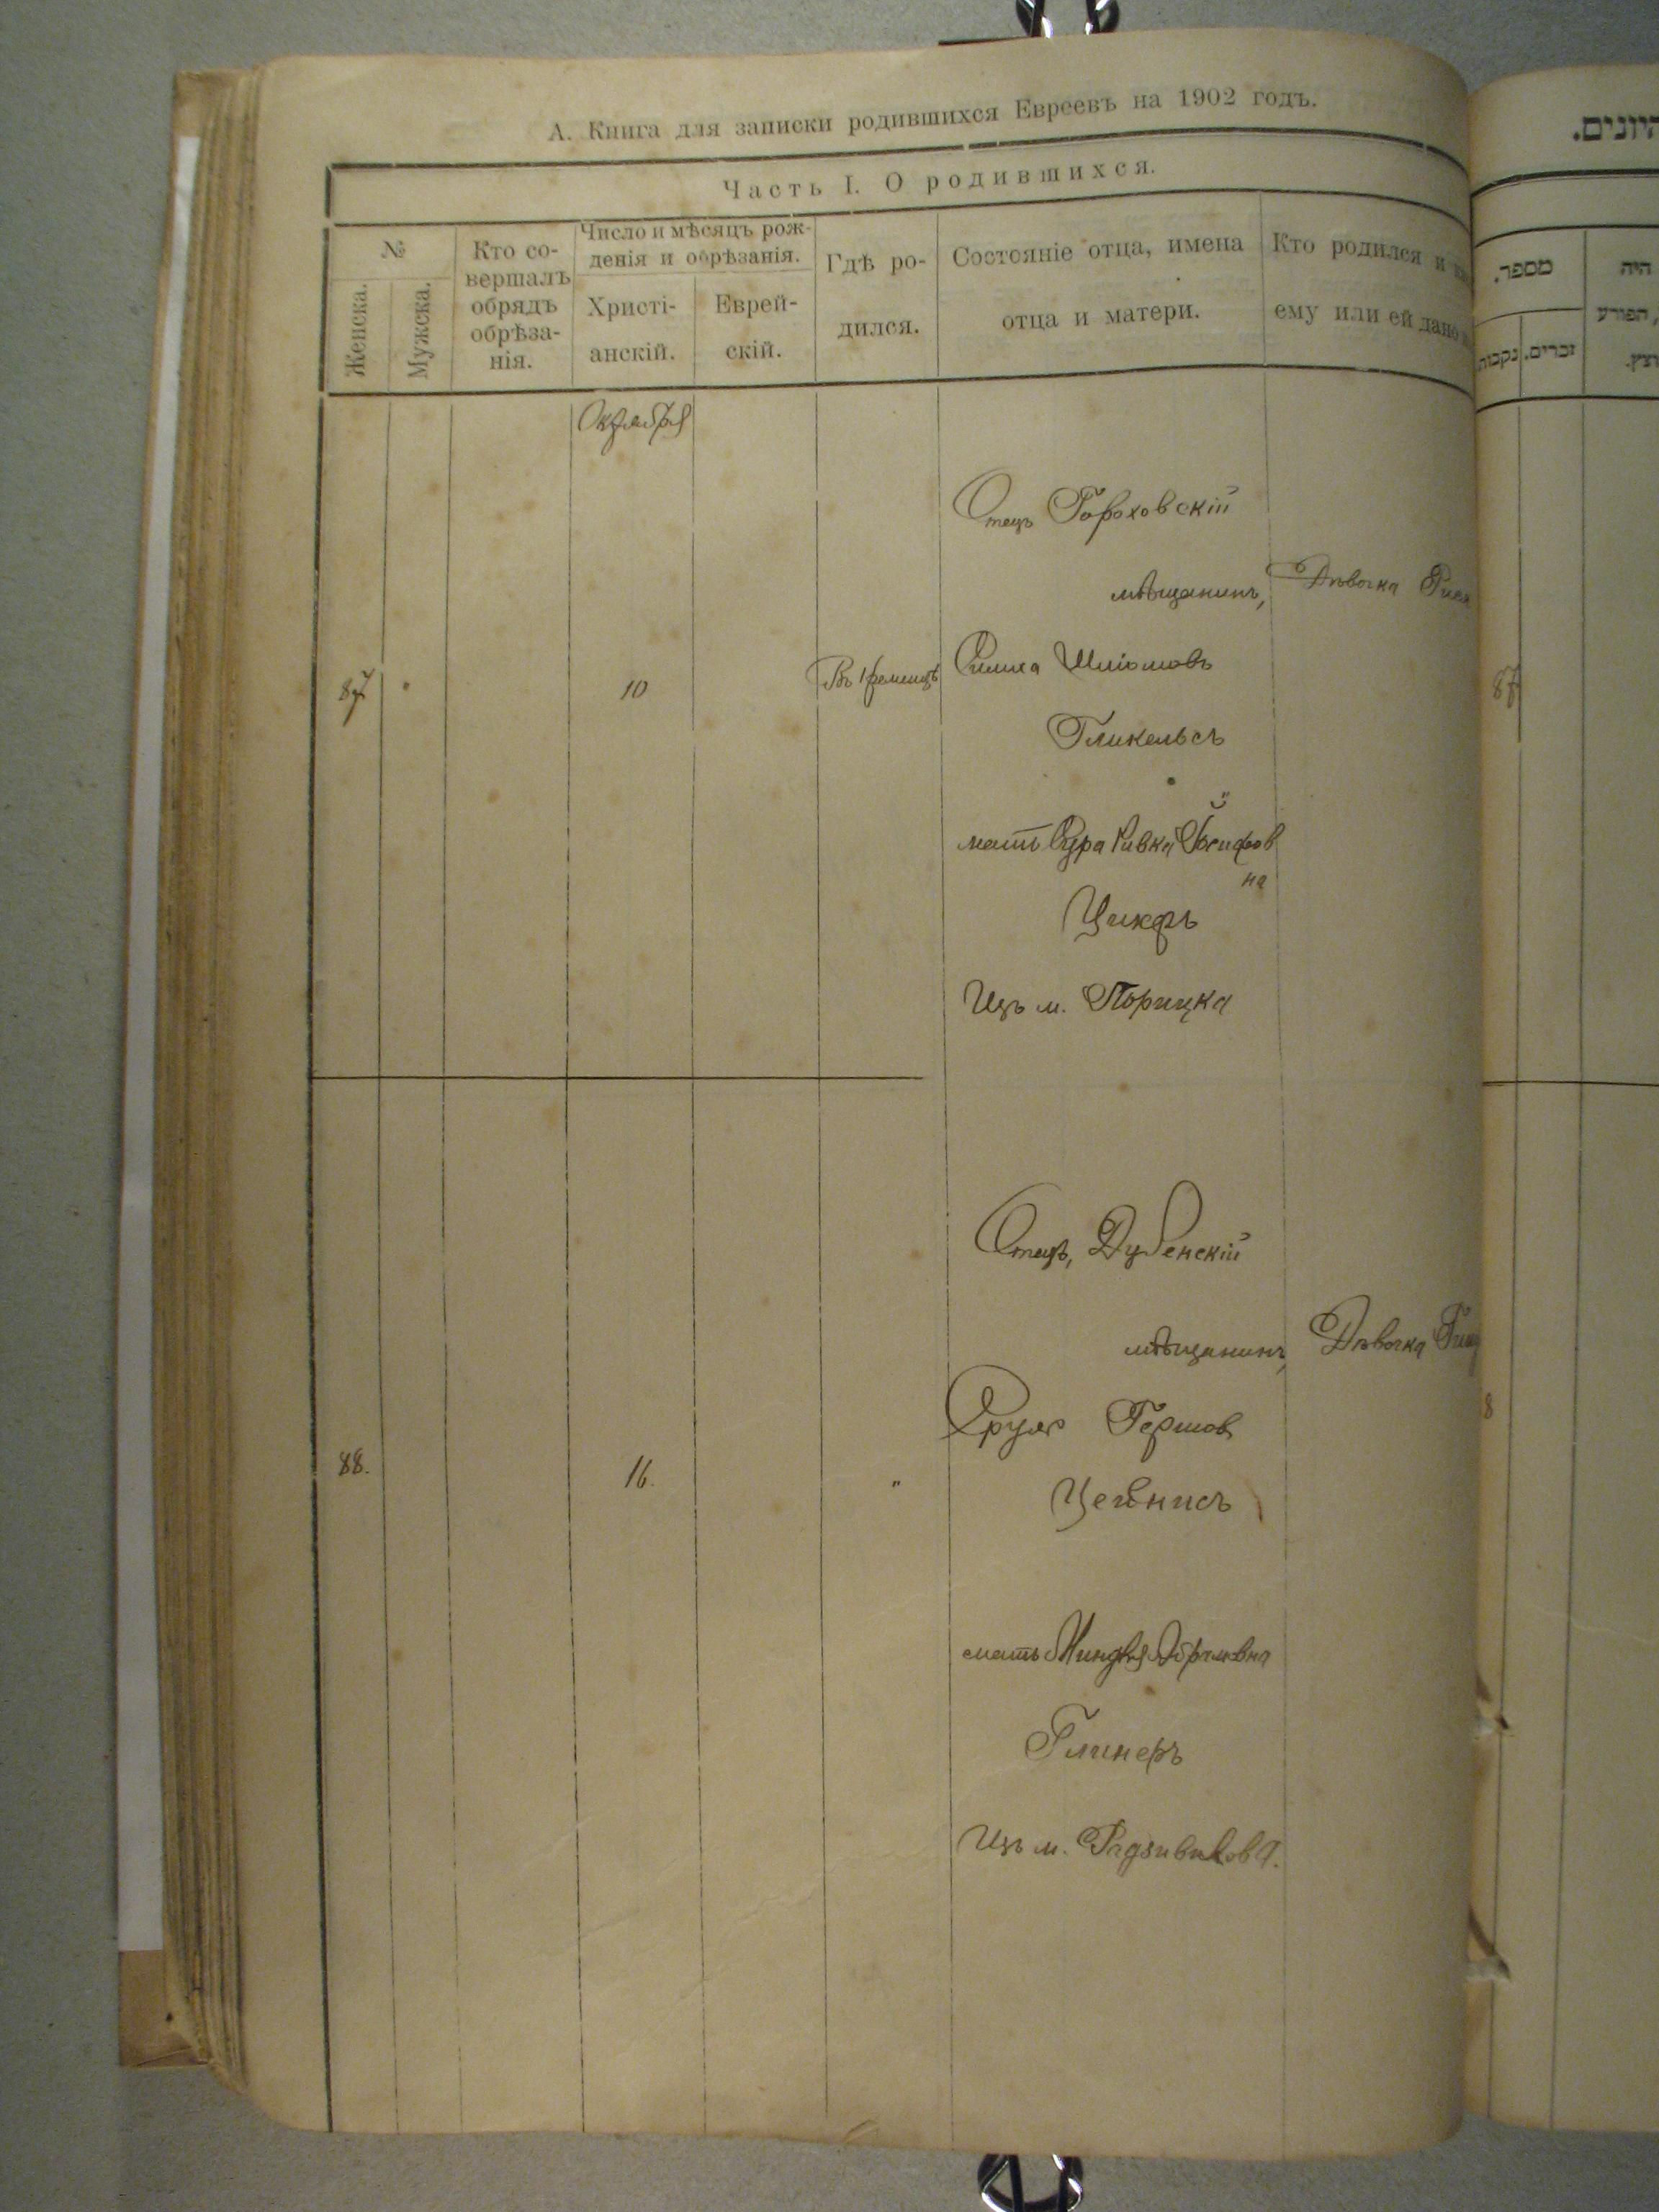 А. Книга для записки родившихся Евреевъ на 1902 годъ.
Часть I. О родившихся.
№
Женска.
Мужска.
Кто со-
вершалъ
обрядъ
обрѣза-
нія.
Число и мѣсяцъ рож-
денія и обрѣзанія.
Христі-
анскій.
Еврей-
скій.
Гдѣ ро-
дился.
Состояніе отца, имена
отца и матери.
Кто родился и
ему или ей дано
Октября
87
10
Въ Кременцѣ
Отецъ Гороховскій
мѣщанинъ,
Шліомовъ
Гликельсъ
мать Сура Ривка Іосифов
на
Цикъ
Изъ м. Порицка
Дѣвочка
88.
16.
"
Отецъ, Дубенскій
мѣщанинъ,
Сруль Гершов
Цейнисъ
мать Миндля Абрамовна
Глинеръ
Изъ м. Радзивилова.
Дѣвочка
היונים.
מספר.
נקבות
זכרים.
היה
הפורע,
87
8